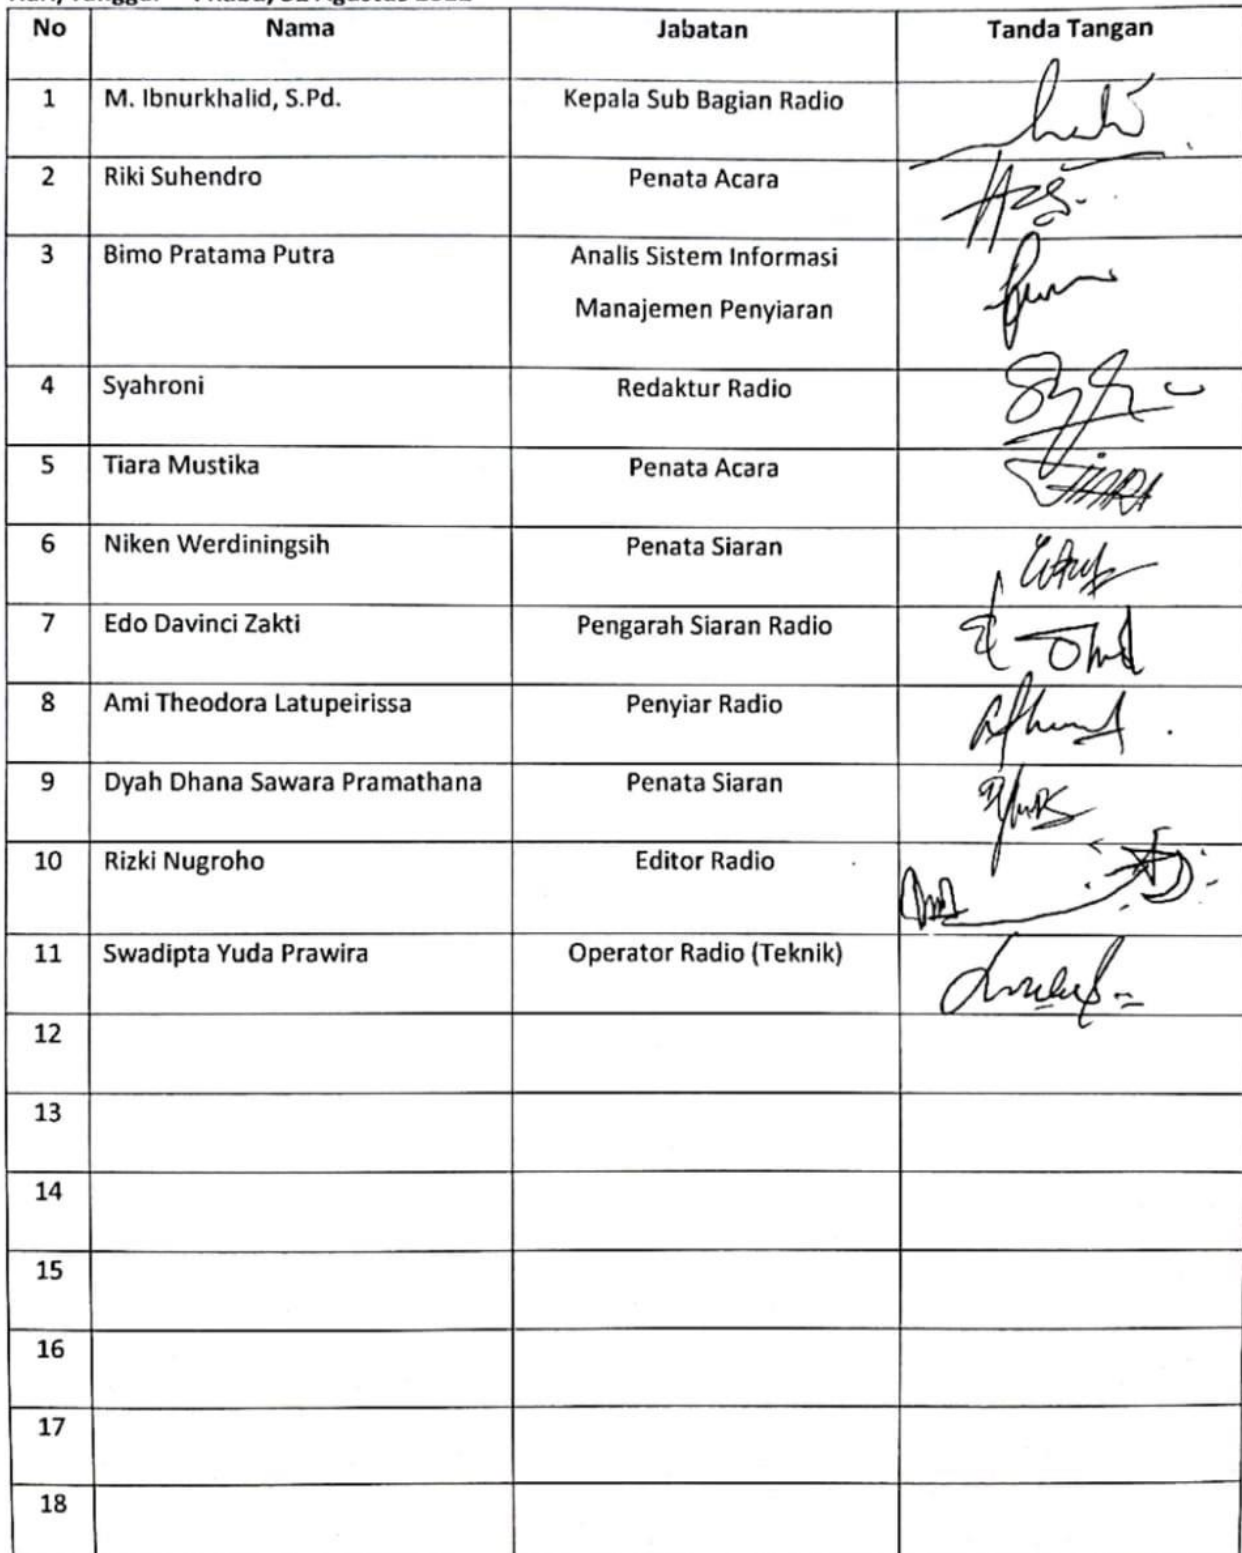 No Nama Jabatan Tanda Tangan
1 M. Ibnurkhalid, S.Pd. Kepala Sub Bagian Radio
2 Riki Suhendro Penata Acara
3 Bimo Pratama Putra Analis Sistem Informasi
Manajemen Penyiaran
4 Syahroni Redaktur Radio
5 Tiara Mustika Penata Acara TIARA
6 Niken Werdiningsih Penata Siaran
7 Edo Davinci Zakti Pengarah Siaran Radio
8 Ami Theodora Latupeirissa Penyiar Radio
9 Dyah Dhana Sawara Pramathana Penata Siaran
10 Rizki Nugroho Editor Radio
11 Swadipta Yuda Prawira Operator Radio (Teknik)
12
13
14
15
16
17
18